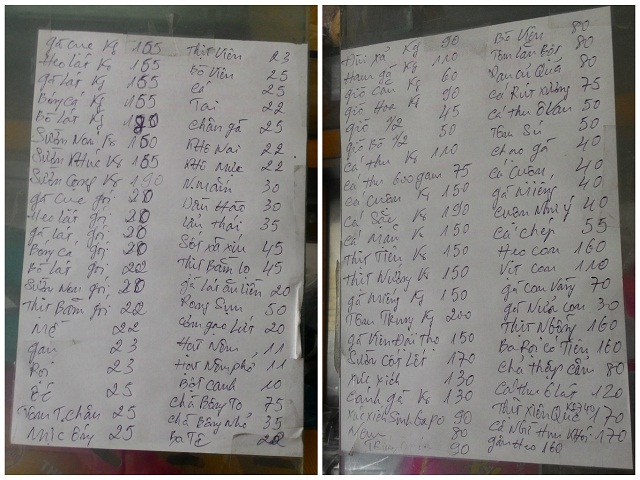 gà cục Kg 165
Heo lát Kg 165
gà lát Kg 165
Bóng Cá Kg 165
Bò lát Kg 190
Sườn Non Kg 160
Sườn Khúc Kg 165
Sườn Cọng Kg 190
gà cục gói 20
Heo lát gói 20
gà lát gói 20
Bóng Cá gói 20
Bò lát gói 22
Sườn Non gói 20
Thịt Bằm gói 22
Mề 22
gan 23
25
Tôm T. Chân 25
Mực Ống 25
Thịt Viên 23
Bò Viên 25
Cá 25
Tai 22
Chân gà 25
Khô Nai 22
Khô Mực 22
N. mắm 30
Dầu Hào 30
Lẩu Thái 35
Sốt xá xíu 45
Thịt Bằm Lo 45
gà lát ăn liền 20
Rong Sụn 50
Cốm gạo Lứt 20
Hạt Nêm 11
Hạt Nêm phở 11
Bột Canh 10
Chả Bông To 75
Chả Bông Nhỏ 35
Đùi xá Kg 90
Ham gà Kg 110
giò Cần Kg 60
giò Hoa Kg 90
giò 1/2 45
giò Bò 1/2 50
Cá thu Kg 110
Cá thu 600gam 75
Cá Cuộn Kg 150
Cá Sặc Kg 190
Cá Mặn Kg 150
Thịt Tiên Kg 150
Thịt Nướng Kg 150
gà Miếng Kg 150
Tôm Trung Kg 200
gà Viên Đài thọ 150
Sườn Cốt Lết 170
xúc xích 130
Cánh gà Kg 130
90
Nem 80
90
Bò Viên 80
Tôm lăn Bột 80
80
Cá Rút xương 75
Cá thu 50
Tôm Sú 50
Chạo gà 40
Cá Cuộn 40
gà Miếng 40
Cuộn Như ý 40
Cá chép 55
Heo Con 160
Vịt Con 110
gà Con Vàng 70
gà Nửa Con 30
Thịt Nhồng 160
Ba Rọi Có Tiên 160
Chả thập cẩm 80
Cá thu 6 lát 120
Thịt Xiên Que 170
Cá Ngừ Hun Khói 170
giăm Heo 160